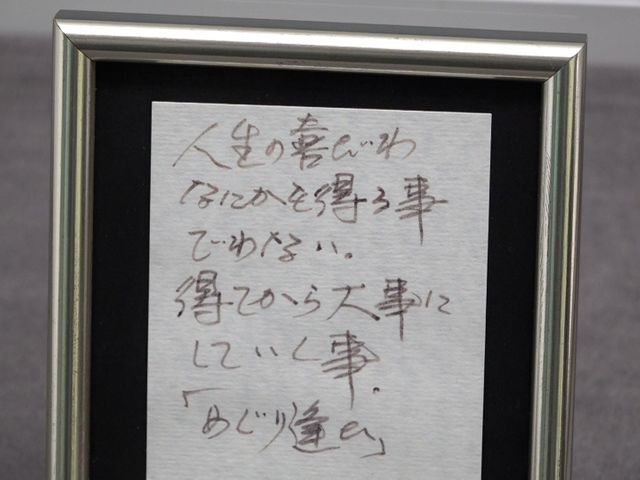 人生の喜びわ
なにかを得る事
でわない。
得てから大事に
していく事.
「めぐり逢い」